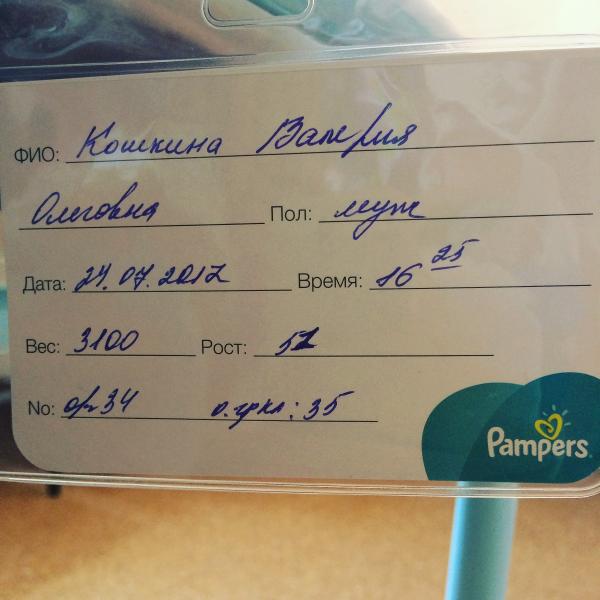 ФИО: Кошкина Валерия
Олеговна Пол: муж
Дата: 24.07.2017 Время: 16 25
Вес: 3100 Рост: 51
No: ор34 о.гркл: 35
Pampers